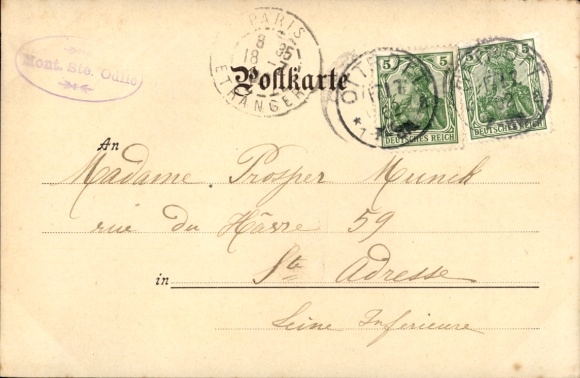 Mont. Ste. Odile
PARIS
8 35
18
ETRANGER
Postkarte
5 5
DEUTSCHES REICH
5 5
DEUTSCHES REICH
An
Madame Prosper Munck
rue du Hâvre 59
in Ste Adresse
Seine Inférieure